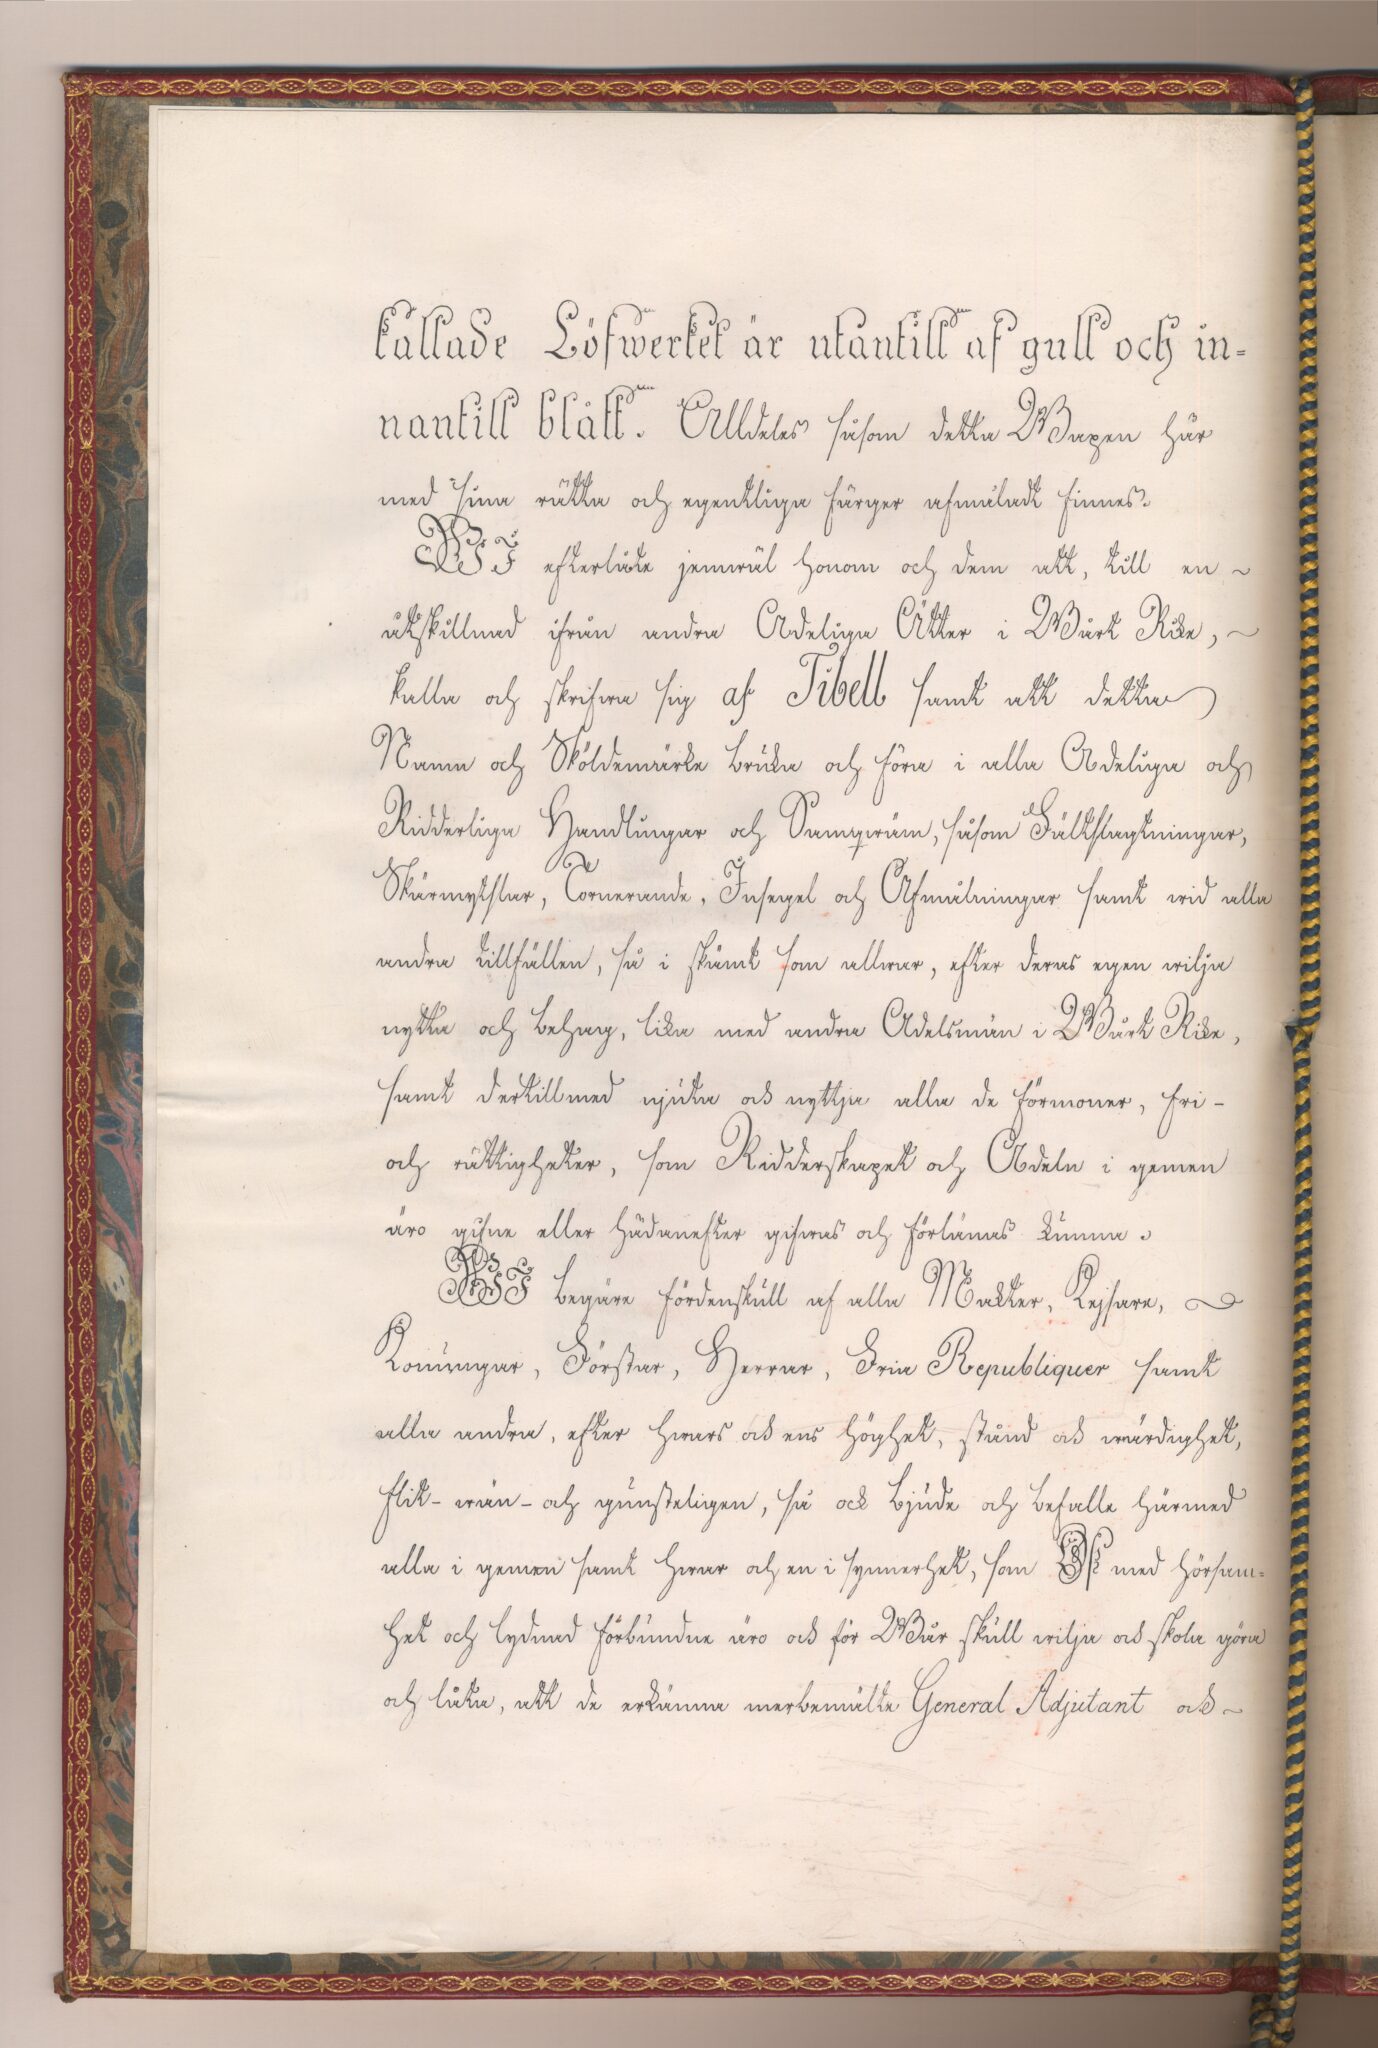 kallade Löfwerket är utantill af gull och in=
nantill blått. Alldeles såsom detta Wapen här
med sina rätta och egentliga färger afmåladt finnes.
WI efterlåte jemwäl honom och dem att, till en
åtskillnad ifrån andra Adeliga Ätter i Wårt Rike,
kalla och skrifwa sig af Tibell samt att detta
Namn och Sköldemärke bruka och föra i alla Adeliga och
Ridderliga Handlingar och Samqwäm, såsom Fältslagtningar,
Skärmytslar, Tornerande, Insegel och Afmålningar samt wid alla
andra tillfällen, så i skämt som allwar, efter deras egen wilja
nytta och behag, lika med andra Adelsmän i Wårt Rike,
samt dertillmed njuta ock nyttja alla de förmoner, fri-
och rättigheter, som Ridderskapet och Adeln i gemen
äro gifne eller hädanefter gifwas och förlänas kunna.
WI begäre fördenskull af alla Makter, Kejsare,
Konungar, Förstar, Herrar, Fria Republiquer samt
alla andra, efter hwars ock ens höghet, stånd ock wärdighet,
flit- wän- och gunsteligen, så ock bjude och befalle härmed
alla i gemen samt hwar och en i synnerhet, som Oss med hörsam=
het och lydnad förbundne äro ock för Wår skull wilja ock skola göra
och låta, att de erkänna merbemälte General Adjutant ock